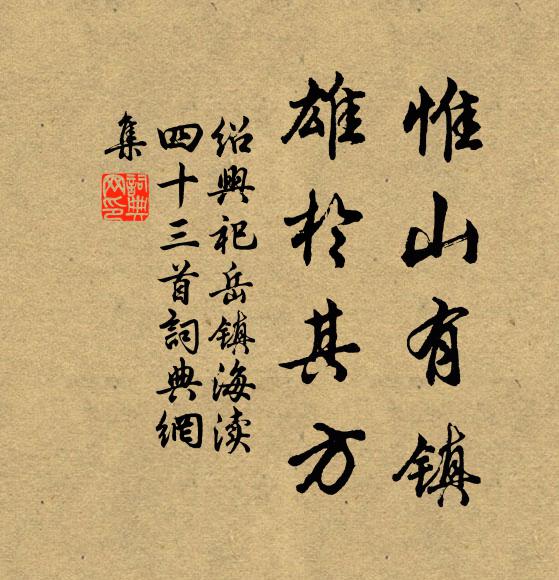 惟山有镇
雄於其方
绍興祀岳镇海渎
四十三首詞典網
集
詞典網印